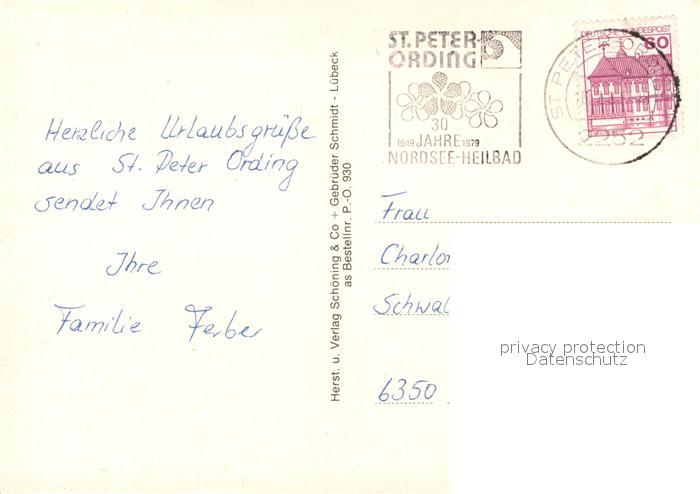 Herzliche Urlaubsgrüße
aus St. Peter Ording
sendet Ihnen
Ihre
Familie Ferber
Herst. u. Verlag Schöning & Co + Gebrüder Schmidt - Lübeck
as Bestellnr. P.-O. 930
ST. PETER-
ORDING
30
1949 JAHRE 1979
NORDSEE-HEILBAD
DEUTSCHE BUNDESPOST
60
ST. PETER-ORDING
2252
Frau
Charlo
Schwal
6350
privacy protection
Datenschutz